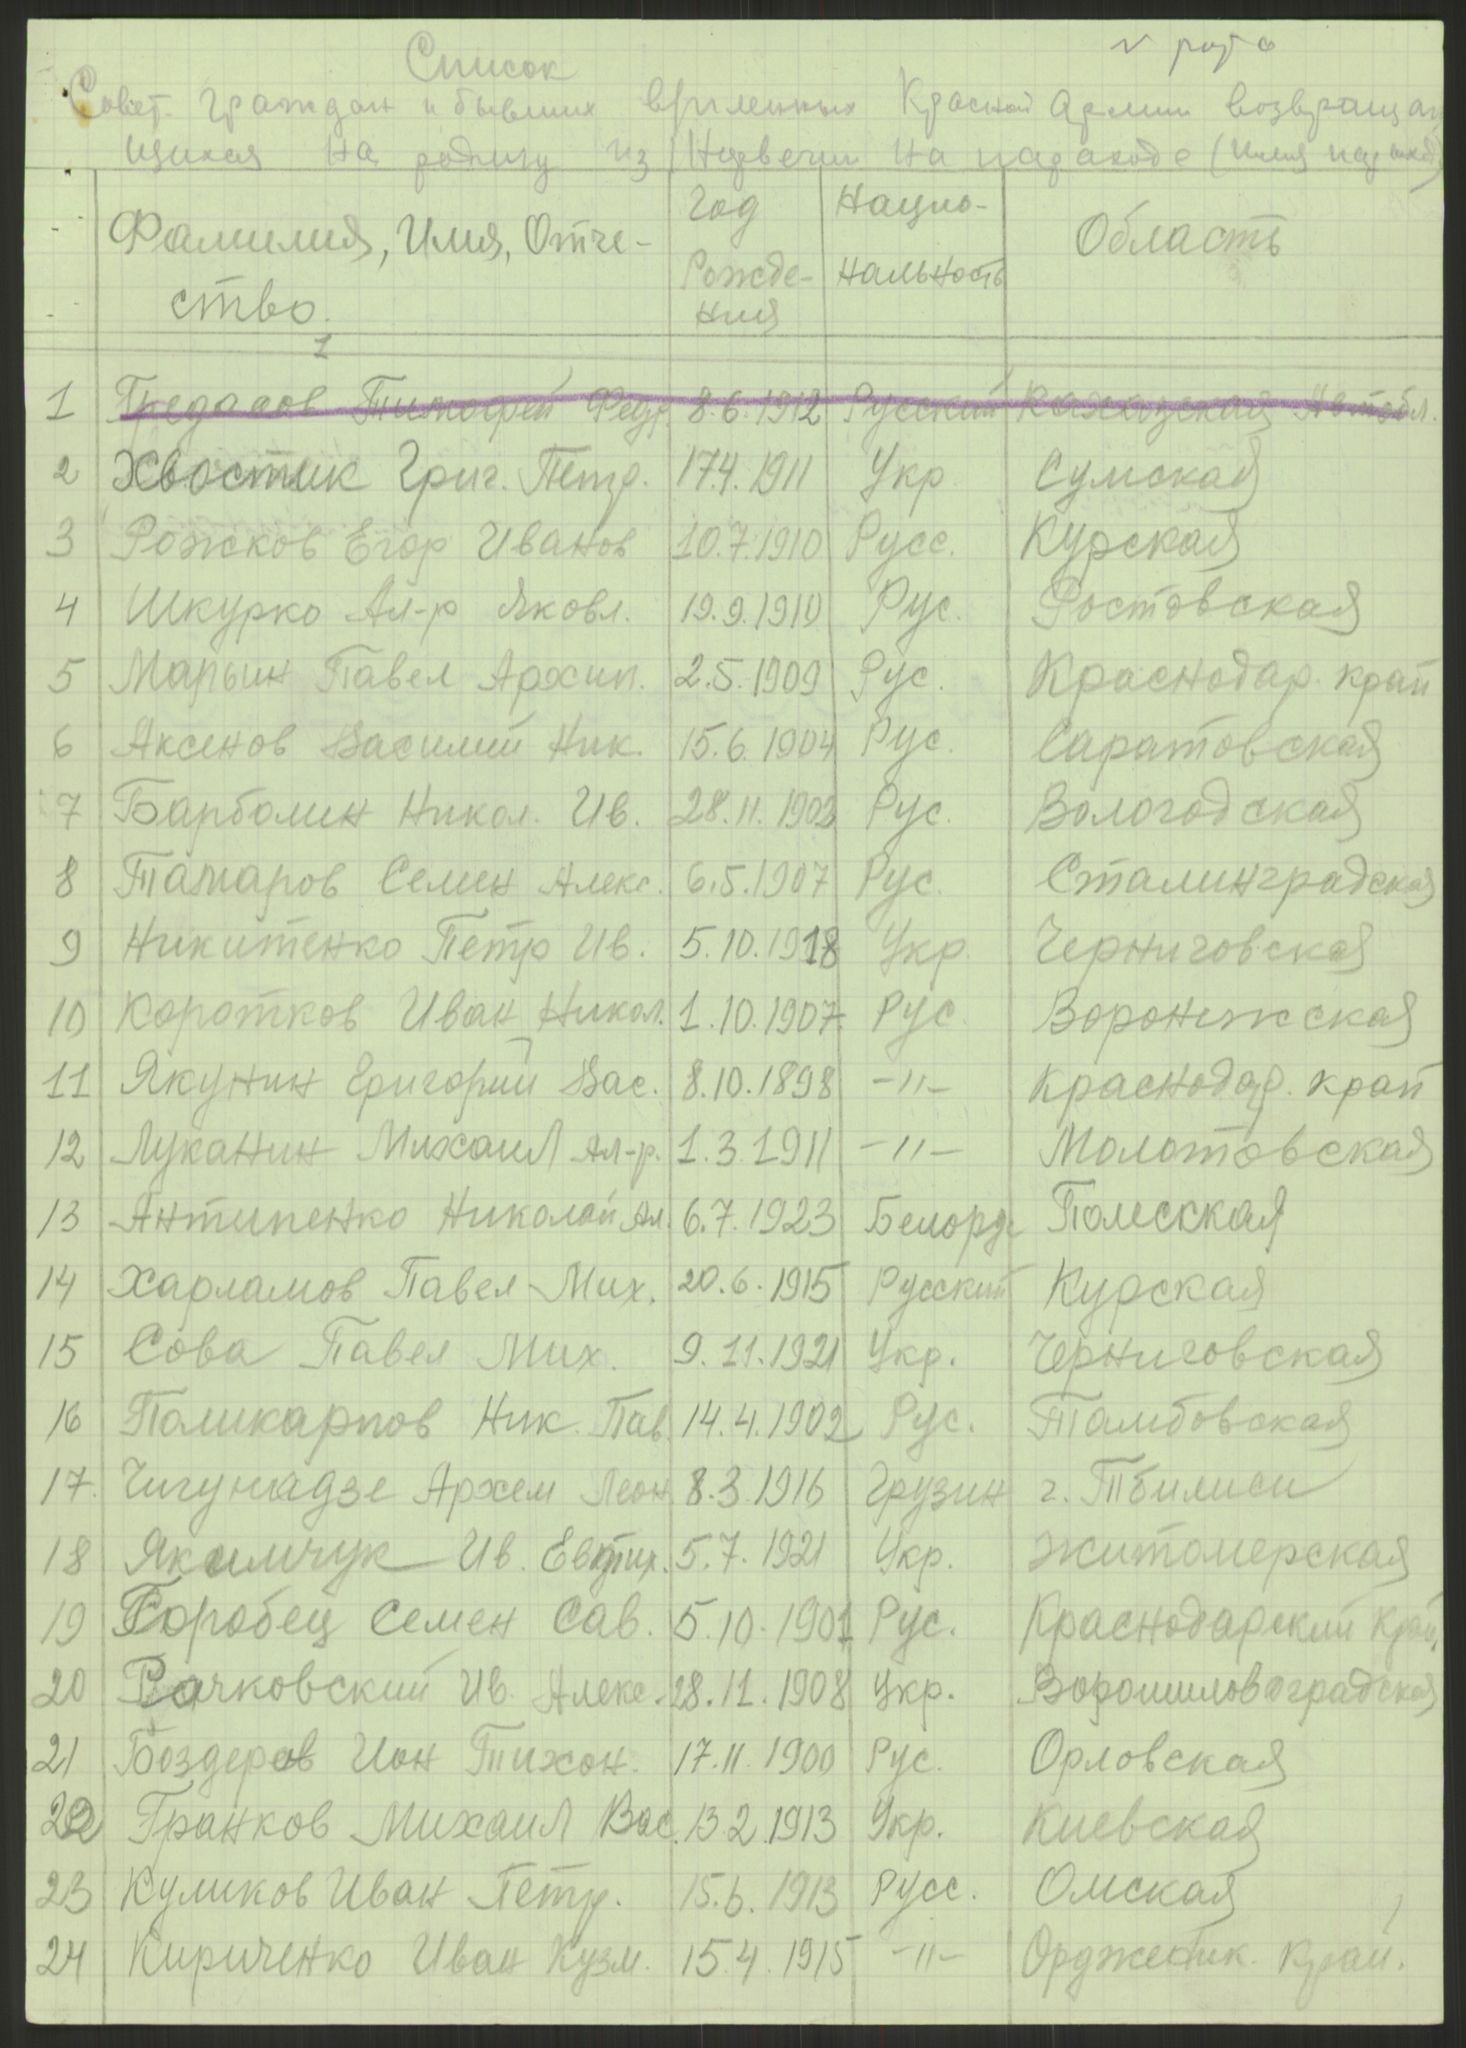 v рота
Список
Совет. граждан и бывших военных Красной Армии возвращаю
щихся на родину из Норвегии на пароходе (Имя парохода)
Фамилия, Имя, Отче-
ство.
Год
Рожде-
ния
Нацио-
нальность
Область
1
1 Тимофей Фед. 8.6.1912 Русский Автобл.
2 Хвостик Григ. Петр. 17.4.1911 Укр Сумская
3 Рожков Егор Иванов 10.7.1910 Русс. Курская
4 Шкурко Ал-р Яковл. 19.9.1910 Рус. Ростовская
5 Марьин Павел Архип. 2.5.1909 Рус. Краснодар. край
6 Аксенов Василий Ник. 15.6.1904 Рус. Саратовская
7 Барболин Никол. Ив. 28.11.1902 Рус. Вологодская
8 Татаров Семен Алекс. 6.5.1907 Рус. Сталинградская
9 Никитенко Петр Ив. 5.10.1918 Укр. Черниговская
10 Коротков Иван Никол. 1.10.1907 Рус Воронежская
11 Якунин Григорий Вас. 8.10.1898 –"– Краснодар. край
12 Луканин Михаил Ал-р. 1.3.1911 –"– Молотовская
13 Антипенко Николай Ал. 6.7.1923 Белорус Полесская
14 Харламов Павел Мих. 20.6.1915 Русский Курская
15 Сова Павел Мих. 9.11.1921 Укр. Черниговская
16 Поликарпов Ник. Пав. 14.4.1902 Рус. Тамбовская
17. Архем Леон. 8.3.1916 Грузин г. Тбилиси
18 Якимчук Ив. Евтих. 5.7.1921 Укр. Житомерская
19 Горобец Семен Сав. 5.10.1901 Рус. Краснодарский Край.
20 Рачковский Ив. Алекс. 28.11.1908 Укр. Ворошиловоградская
21 Боздеров Ион Тихон. 17.11.1900 Рус. Орловская
22 Гранков Михаил Вас. 13.2.1913 Укр. Киевская
23 Куликов Иван Петр. 15.6.1913 Русс. Омская
24 Кириченко Иван Кузм. 15.4.1915 –"– Ордженик. Край.